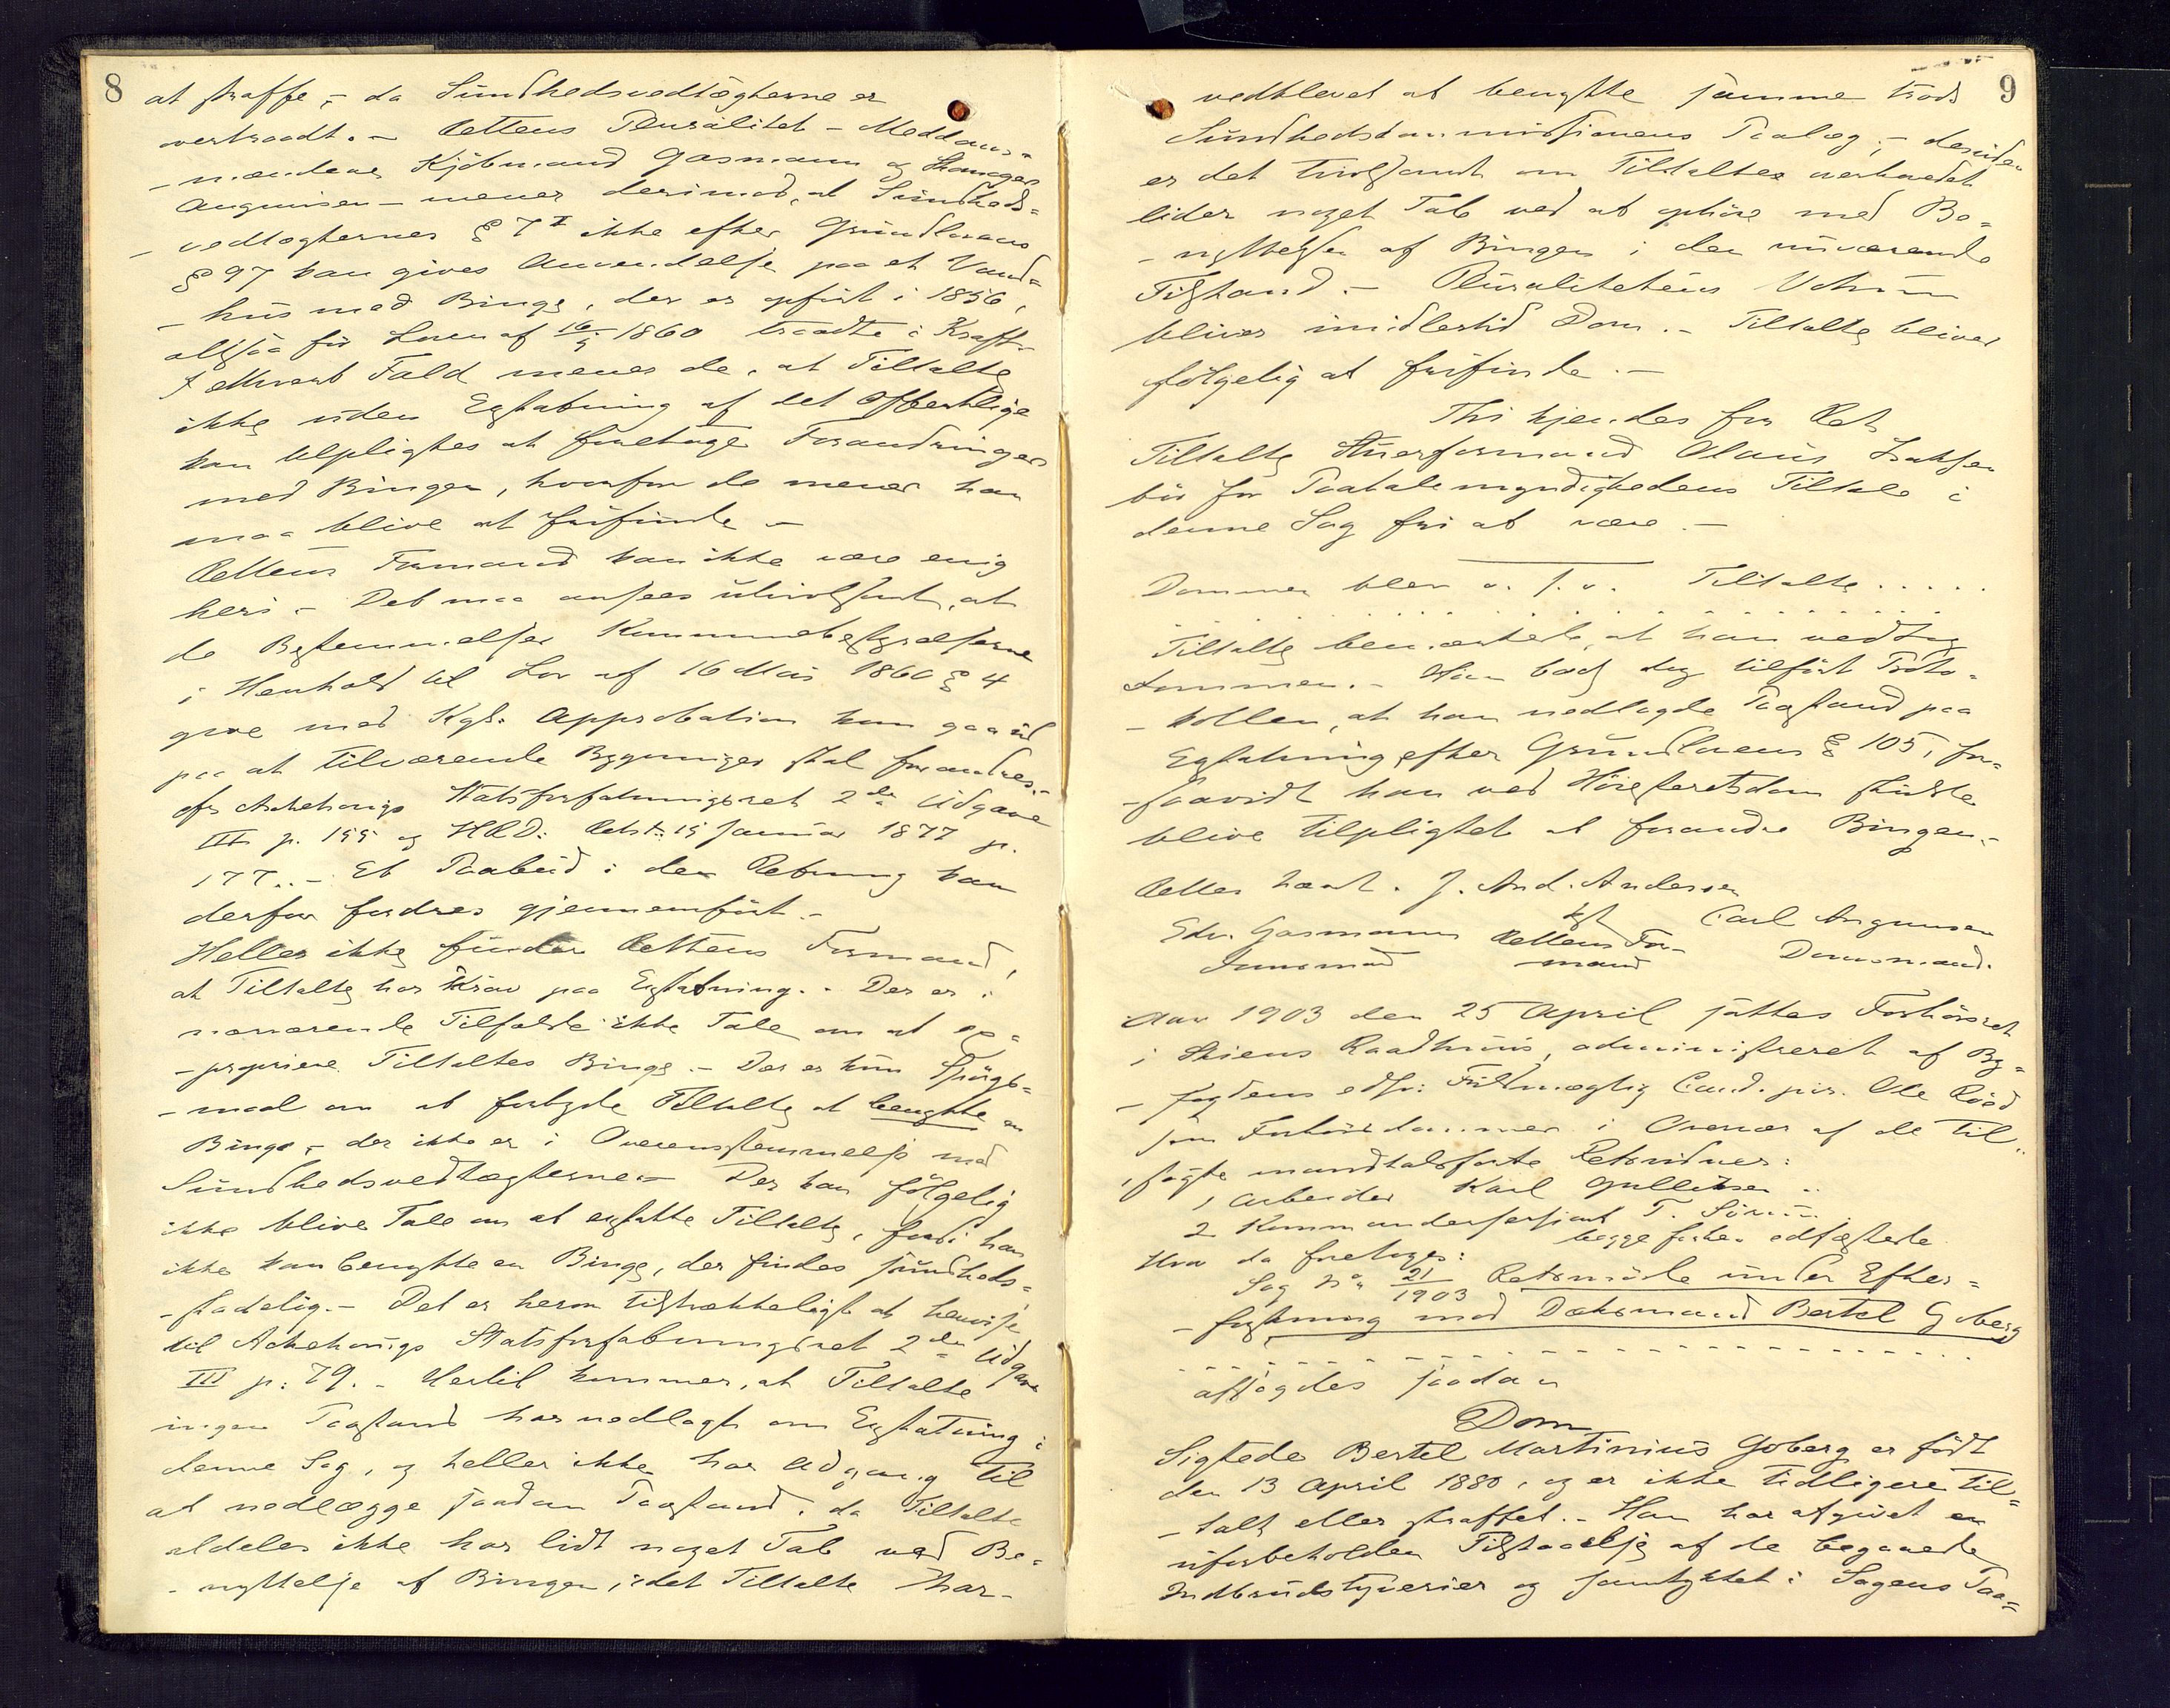 8
at straffe, - da Sundhedsvedtægterne er
overtraadt. - Rettens Pluralitet - Meddoms-
- mændene Kjöbmand Gasmann og
Angunsen - mener derimod, at Sundheds=
- vedtægternes § 7 I ikke efter Grundlovens
§ 97 kan gives Anvendelse paa et Vand=
- hus med Binge, der er opfört i 1856,
altsaa för Loven af 16/5 1860 traadte i Kraft. -
I ethvert Fald mener de, at Tiltalte
ikke uden Erstatning af det Offentlige
kan tilpligtes at foretage Forandringer
med Bingen, hvorfor de mener han
maa blive at frifinde -
Rettens Formand kan ikke være enig
heri. - Det maa ansees utvivlsomt, at
de Bestemmelser Kommunebestyrelserne
i Henhold til Lov af 16 Mai 1860 § 4
give med Kgl. Approbation kan gaa ud
paa at tilværende Bygninger skal forandres. -
cfr Aschehougs Statsforfatningsret 2den Udgave
III p. 155 og HRD: Retst: 15 Januar 1877 p.
177. - Et Paabud i den Retning kan
derfor fordres gjennemfört. -
Heller ikke finder Rettens Formand,
at Tiltalte har Krav paa Erstatning. - Der er i
nærværende Tilfælde ikke Tale om at ex=
- propriere Tiltaltes Binge. - Der er kun Spörgs=
- maal om at forbyde Tiltalte at benytte en
Binge, - der ikke er i Overensstemmelse med
Sundhedsvedtægterne. - Der kan fölgelig
ikke blive Tale om at erstatte Tiltalte, fordi han
ikke kan benytte en Binge, der findes sundheds=
- skadelig. - Det er herom tilstrækkeligt at henvise
til Aschehougs Statsforfatningsret 2den Udgave
III p. 79. - Hertil kommer, at Tiltalte
ingen Paastand har nedlagt om Erstatning i
denne Sag, og heller ikke har Adgang til
at nedlægge saadan Paastand, da Tiltalte
aldeles ikke har lidt noget Tab ved Be=
- nyttelse af Bingen, idet Tiltalte har -
9
vedblevet at benytte samme trods
Sundhedskommissionens Paalæg; - desuden
er det tvivlsomt om Tiltalte overhovedet
lider noget Tab ved at ophöre med Be=
- nyttelsen af Bingen i den nuværende
Tilstand. - Pluralitetens Votum
bliver imidlertid Dom. - Tiltalte bliver
fölgelig at frifinde. -
Thi kjendes for Ret
Tiltalte Stuerformand Olaus Isaksen
bör for Paatalemyndighedens Tiltale i
denne Sag fri at være. -
Dommen blev o. s. v. Tiltalte .....
Tiltalte bemærkede, at han vedtog
Dommen. - Han bad dog tilfört Proto-
- kollen, at han nedlagde Paastand paa
Erstatning efter Grundlovens § 105, for=
- saavidt han ved Höiesteretsdom skulde
blive tilpligtet at forandre Bingen. -
Retten hævet. J. And. Andersen
Edv. Gasmann kst Carl Angunsen
Domsmand Rettens For-mand Domsmand.
Aar 1903 den 25 April sattes Forhörsret
i Skiens Raadhuus, administreret af By=
- fogdens edsv: Fuldmægtig Cand. jur. Ole Röed
som Forhörsdommer i Overvær af de til-
- sagte mandtalsförte Retsvidner:
1 Arbeider Karl Gulliksen
2 Kommandersersjant T.
begge forhen edfæstede
Hvor da foretoges:
Sag No 21/1903 Retsmöde under Efter=
- forskning mod Dæksmand Bertel Goberg
afsagdes saadan
Dom
Sigtede Bertel Martinius Goberg er födt
den 13 April 1880, og er ikke tidligere til=
- talt eller straffet. - Han har afgivet en
uforbeholden Tilstaaelse af de begaaede
Indbrudstyverier og samtykket i Sagens Paa=